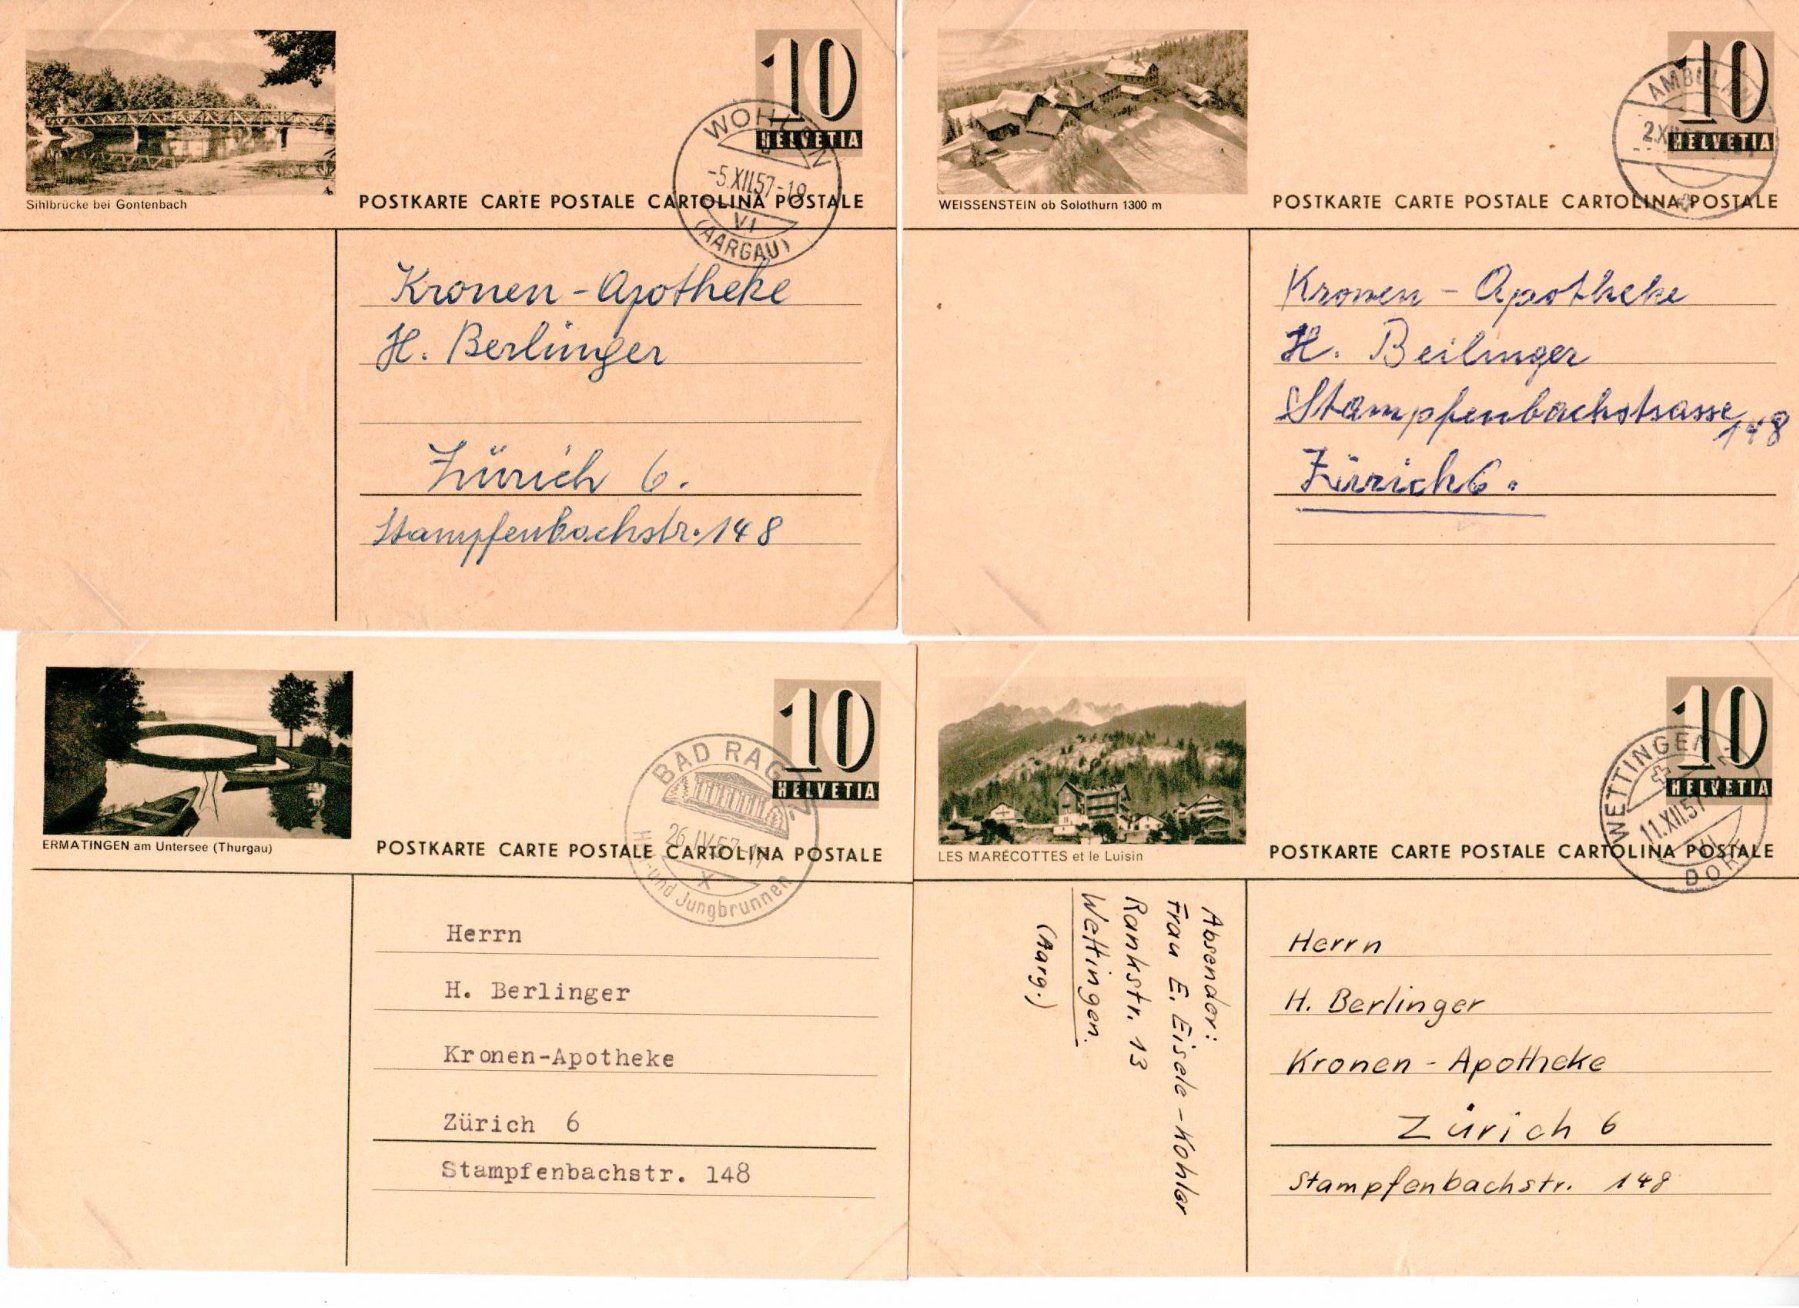 Sihlbrücke bei Gontenbach
10
HELVETIA
POSTKARTE CARTE POSTALE CARTOLINA POSTALE
WOHLEN
-5.XII.57-18
VI
(AARGAU)
Kronen-Apotheke
H. Berlinger
Zürich 6.
Stampfenbachstr. 148
WEISSENSTEIN ob Solothurn 1300 m
10
HELVETIA
POSTKARTE CARTE POSTALE CARTOLINA POSTALE
2.XII
Kronen - Apotheke
H. Beilinger
Stampfenbachstsasse
148
Zürich 6.
ERMATINGEN am Untersee (Thurgau)
10
HELVETIA
POSTKARTE CARTE POSTALE CARTOLINA POSTALE
BAD RAGAZ
26.IV.57
X
und Jungbrunnen
Herrn
H. Berlinger
Kronen-Apotheke
Zürich 6
Stampfenbachstr. 148
LES MARÉCOTTES et le Luisin
10
HELVETIA
POSTKARTE CARTE POSTALE CARTOLINA POSTALE
WETTINGEN
11.XII.57
DORF
Absender:
Frau E. Eisele-Kohler
Rankstr. 13
Wettingen.
(Aarg.)
Herrn
H. Berlinger
Kronen - Apotheke
Zürich 6
Stampfenbachstr. 148